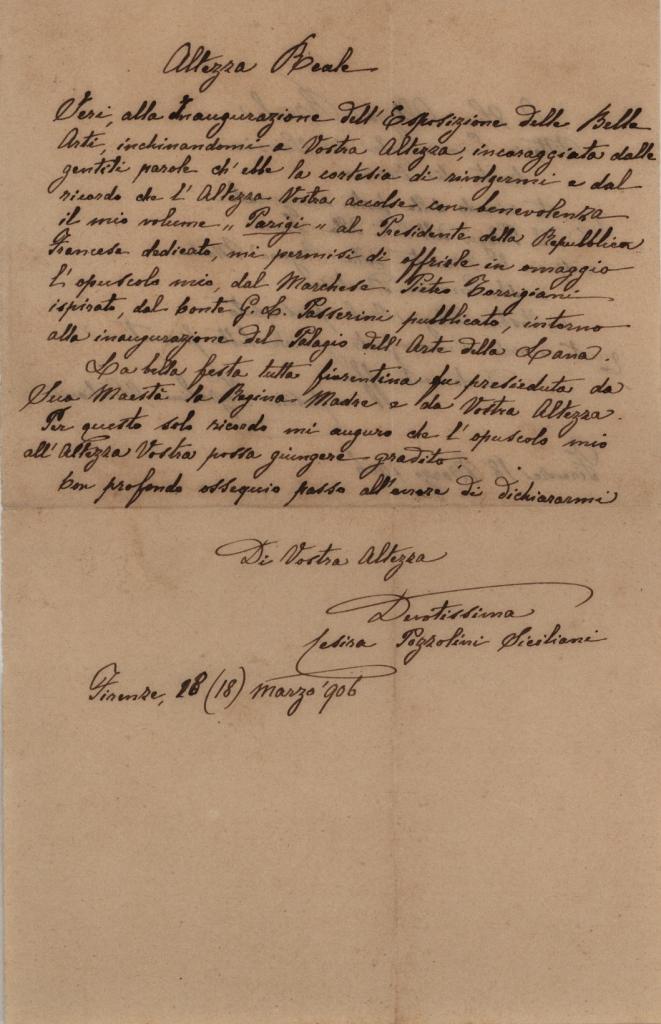 Altezza Reale
Ieri, alla Inaugurazione dell'Esposizione delle Belle
Arti, inchinandomi a Vostra Altezza, incoraggiata dalle
gentili parole ch'ebbe la cortesia di rivolgermi e dal
ricordo che l'Altezza Vostra accolse con benevolenza
il mio volume „ Parigi „ al Presidente della Repubblica
Francese dedicato, mi permisi di offrirle in omaggio
l'opuscolo mio, dal Marchese Pietro Torrigiani
ispirato, dal Conte G. L. Passerini pubblicato, intorno
alla inaugurazione del Palagio dell'Arte della Lana.
La bella festa tutta fiorentina fu presieduta da
Sua Maestà la Regina Madre e da Vostra Altezza.
Per questo solo ricordo mi auguro che l'opuscolo mio
all'Altezza Vostra possa giungere gradito.
Con profondo ossequio passo all'onore di dichiararmi
Di Vostra Altezza
Devotissima
Cesira Pozzolini Siciliani
Firenze, 18 (18) Marzo '906